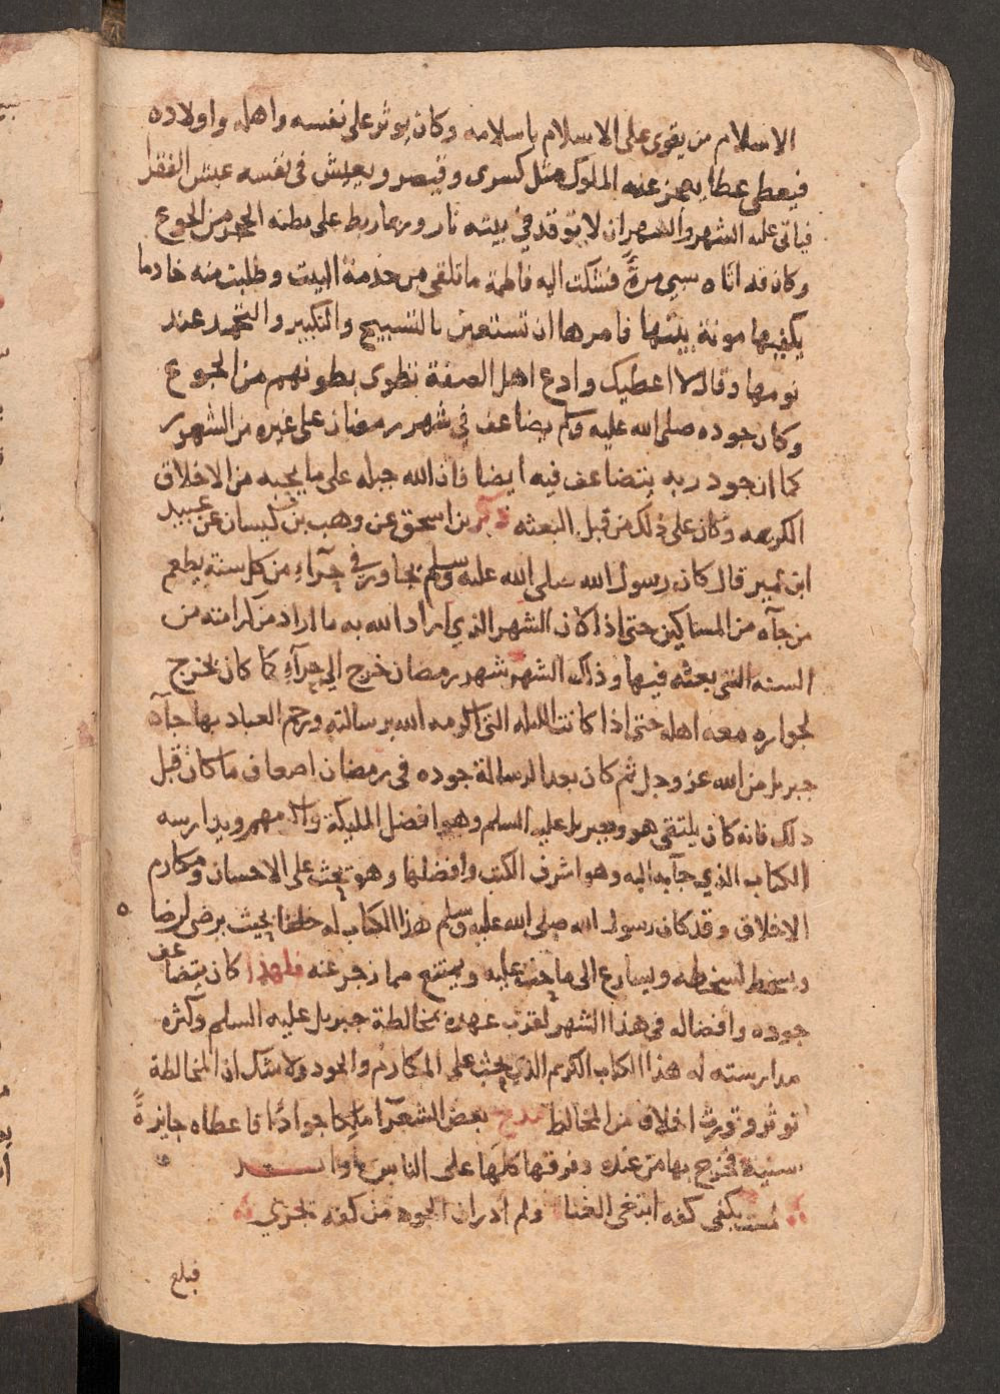 الاسلام من يقوى على الاسلام باسلامه وكان يوثر على نفسه واهله واولاده
فيعطى عطا يعجز عنه الملوك مثل كسرى وقيصر ويعيش فى نفسه عيش الفقرا
فياتى عليه الشهر والشهران لا توقد في بيته نار وربما ربط على بطنه الحجر من الجوع
وكان قد اتاه سبي مرةً فشكت اليه فاطمة ما تلقى من خدمة البيت وطلبت منه خادما
يكفيها مونة بيتها فامرها ان تستعين بالتسبيح والتكبير والتحميد عند
نومها وقال لا اعطيك وادع اهل الصفة تطوى بطونهم من الجوع
وكان جوده صلى الله عليه وسلم يضاعف في شهر رمضان على غيره من الشهور
كما ان جود ربه يتضاعف فيه ايضا فان الله جبله على ما يحبه من الاخلاق
الكريمه وكان على ذلك من قبل البعثه ذكر بن اسحق عن وهب بن كيسان عن عبيد
ابن عمير قال كان رسول الله صلى الله عليه وسلم يجاور في حرآءٍ من كل سنته يطعم
من جآه من المساكين حتى اذا كان الشهر الذي اراد الله به ما اراد من كرامته من
السنه التى بعثه فيها وذلك الشهر شهر رمضان خرج الى حرآءٍ كما كان يخرج
لجواره معه اهله حتى اذا كانت الليله التى اكرمه الله برسالته ورحم العباد بها جآه
جبريل من الله عز وجل ثم كان بعد الرسالة جوده فى رمضان اضعاف ما كان قبل
ذلك فانه كان يلتقى هو وجبريل عليه السلم وهو افضل المليكة واكرمهم ويدارسه
الكتاب الذي جآ به اليه وهو اشرف الكتب وافضلها وهو يحث على الاحسان ومكارم
الاخلاق وقد كان رسول الله صلى الله عليه وسلم هذا الكتاب له خلقا بحيث يرضى لرضا
ويسخط لسخطه ويسارع الى ما حث عليه ويمتنع مما زجر عنه فلهذا كان يتضاعف
جوده وافضاله فى هذا الشهر لقرب عهده بمخالطة جبريل عليه السلم وكثره
مدارسته له هذا الكتاب الكريم الذي يحث على المكارم والجود ولا شك ان المخالطة
توثر وتورث اخلاق من المخالط مدح بعض الشعرآ ملكا جوادًا فاعطاه جايزةً
سنية فخرج بها من عنده وفرقها كلها على الناس وانشد
لمست بكفى كفه ابتغى الغنا ولم ادر ان الجود من كفه يجزي
فبلغ